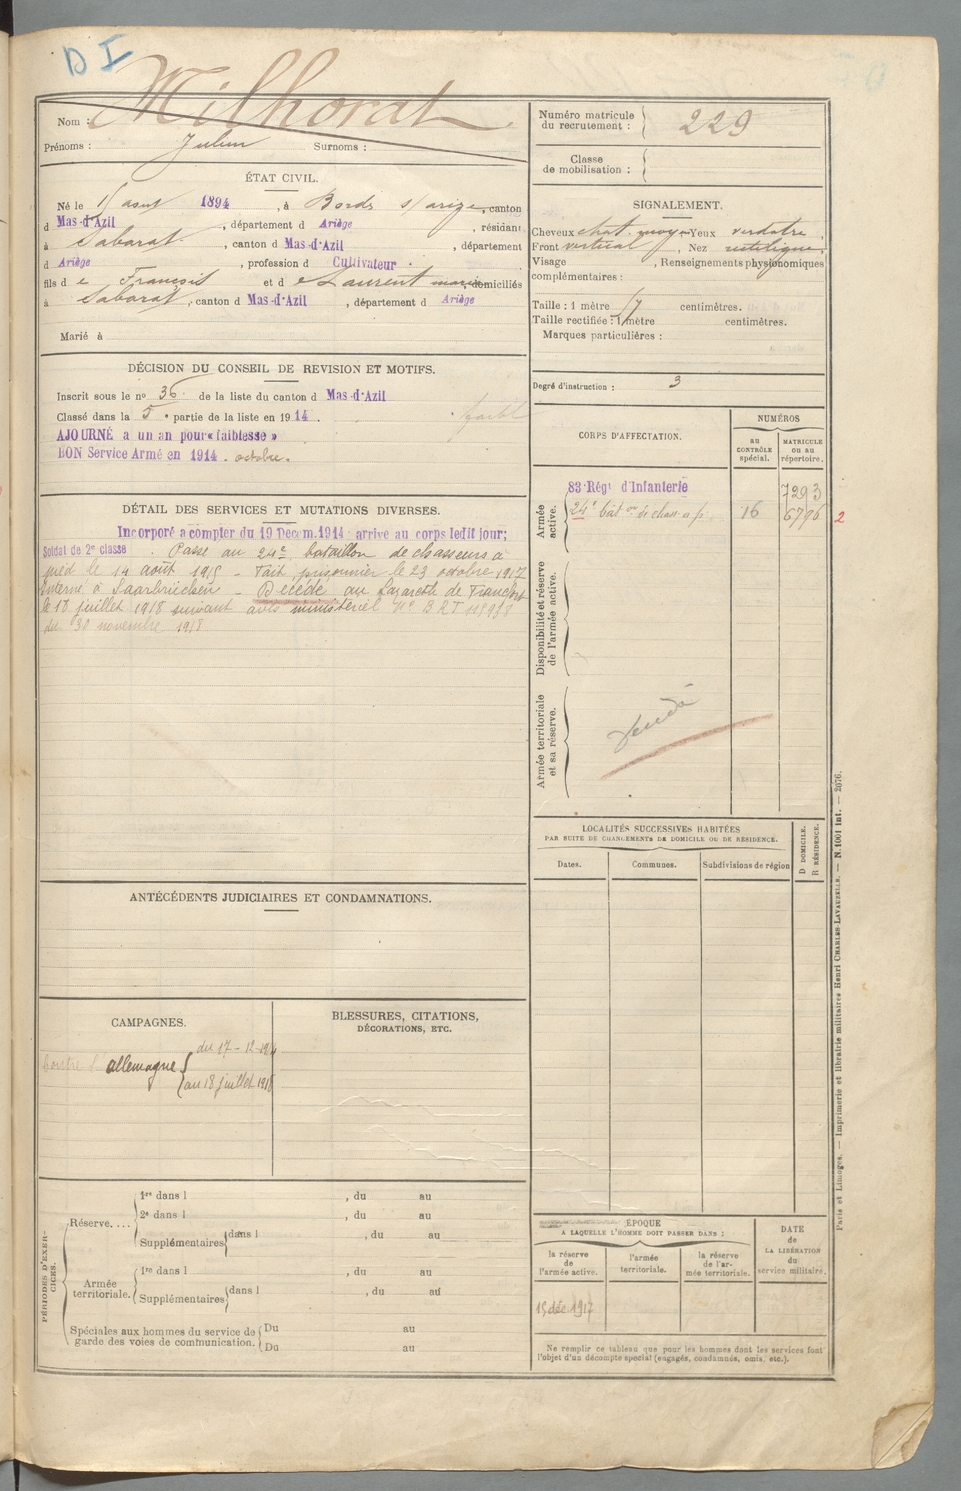 D I
Nom : Milhorat
Prénoms : Julien Surnoms :
ÉTAT CIVIL.
Né le 15 aout 1894, à Bords s/ arize, canton
d Mas-d'Azil, département d Ariège, résidant
à Sabarat, canton d Mas-d'Azil, département
d Ariège, profession d Cultivateur
fils d e François et d e Laurent domiciliés
à Sabarat, canton d Mas-d'Azil, département d Ariège
Marié à
DÉCISION DU CONSEIL DE REVISION ET MOTIFS.
Inscrit sous le no 36 de la liste du canton d Mas-d'Azil
Classé dans la 5e partie de la liste en 1914.
AJOURNÉ a un an pour « faiblesse »
BON Service Armé en 1914. octobre.
DÉTAIL DES SERVICES ET MUTATIONS DIVERSES.
Incorporé a compter du 19 Decem. 1914 : arrive au corps ledit jour;
Soldat de 2e classe. Passé au 24e bataillon de chasseurs à
pied le 14 août 1915 - Fait prisonnier le 23 octobre 1917
Interné à Saarbrücken - Décédé au Lazareth de Francfort
le 18 juillet 1918 suivant avis ministériel No B R T
du 30 novembre 1918
ANTÉCÉDENTS JUDICIAIRES ET CONDAMNATIONS.
CAMPAGNES.
contre l' allemagne { du 17-12-1914
au 18 juillet 1918
BLESSURES, CITATIONS,
DÉCORATIONS, ETC.
PÉRIODES D'EXER-
CICES.
Réserve....
1re dans l , du au
2e dans l , du au
Supplémentaires dans l , du au
Armée
territoriale.
1re dans l , du au
Supplémentaires dans l , du au
Spéciales aux hommes du service de
garde des voies de communication.
Du au
Du au
Numéro matricule
du recrutement : 229
Classe
de mobilisation :
SIGNALEMENT.
Cheveux chat. moy. Yeux verdatre,
Front vertical, Nez rectiligne,
Visage , Renseignements physionomiques
complémentaires :
Taille : 1 mètre 57 centimètres.
Taille rectifiée : 1 mètre centimètres.
Marques particulières :
Degré d'instruction : 3
CORPS D'AFFECTATION.
NUMÉROS
au
CONTRÔLE
spécial.
MATRICULE
ou au
répertoire.
Armée
active.
83 Régt d'Infanterie 7293
24e bat on de chass. a p. 16 6796 2
Disponibilité et réserve
de l'armée active.
Armée territoriale
et sa réserve.
LOCALITÉS SUCCESSIVES HABITÉES
PAR SUITE DE CHANGEMENTS DE DOMICILE OU DE RÉSIDENCE.
D DOMICILE.
R RÉSIDENCE.
Dates. Communes. Subdivisions de région
ÉPOQUE
A LAQUELLE L'HOMME DOIT PASSER DANS :
la réserve
de
l'armée active.
l'armée
territoriale.
la réserve
de l'ar-
mée territoriale.
DATE
de
LA LIBÉRATION
du
service militaire.
15 déc. 1917
Ne remplir ce tableau que pour les hommes dont les services font
l'objet d'un décompte spécial (engagés, condamnés, omis, etc.).
Paris et Limoges. — Imprimerie et librairie militaires Henri CHARLES-LAVAUZELLE. — N. 1001 int. — 2976.